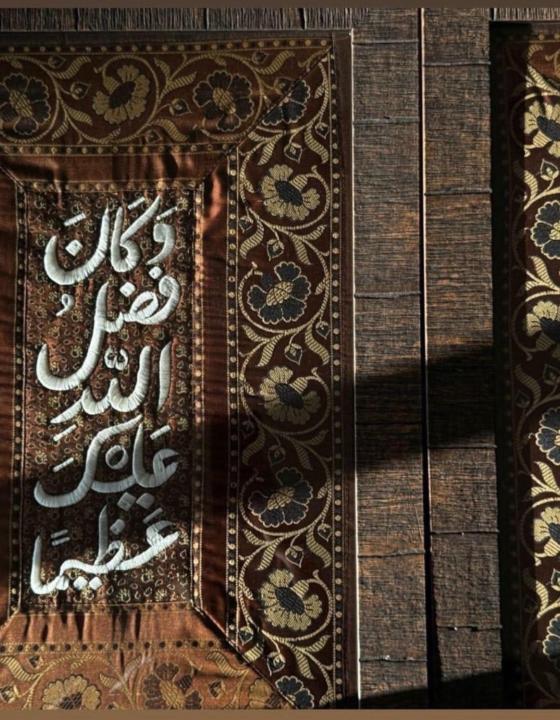 وَكَانَ
فَضْلُ
اللّٰهِ
عَلَيْكَ
عَظِيْمًا